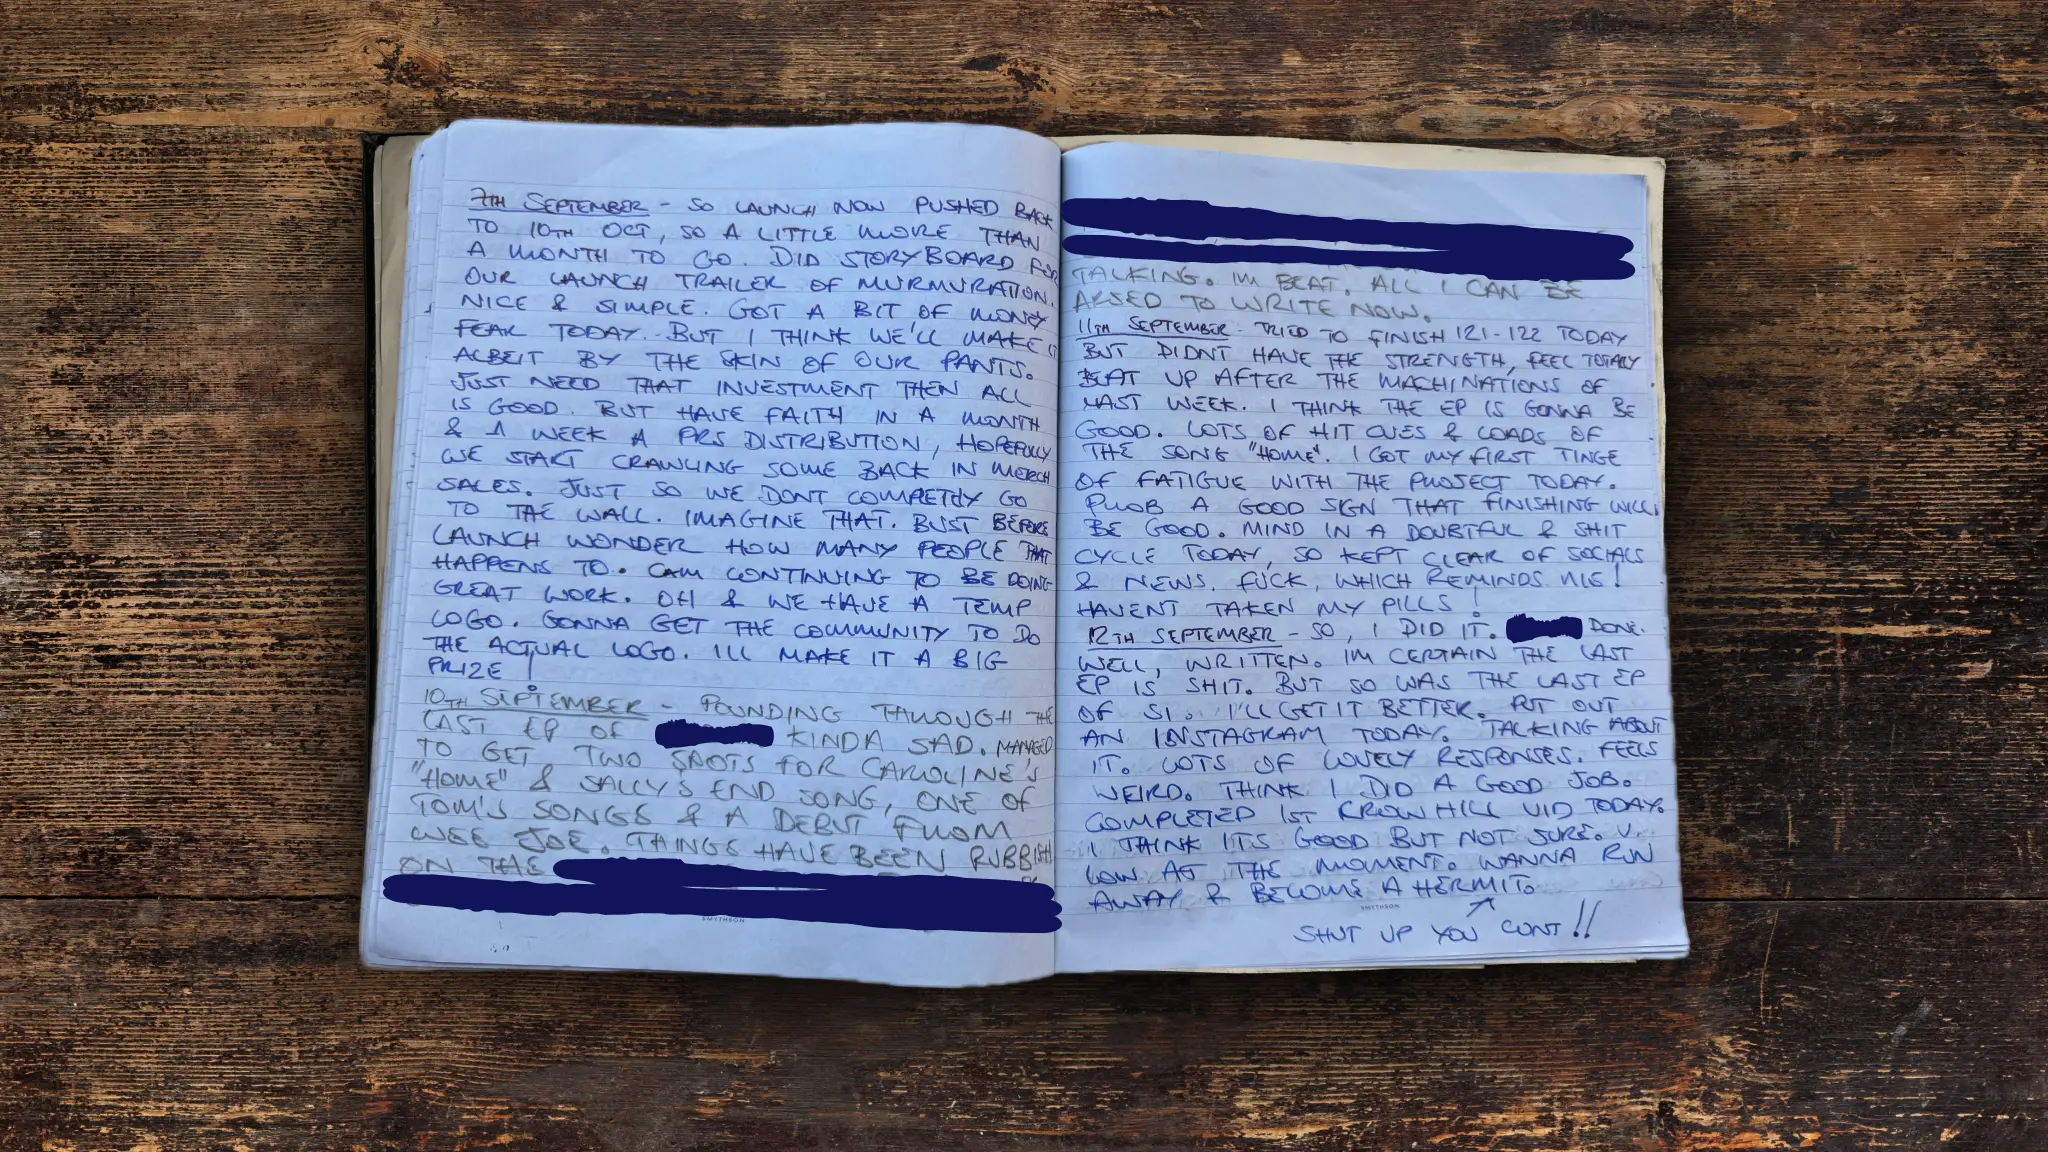 7TH SEPTEMBER - SO LAUNCH NOW PUSHED BACK
TO 10TH OCT, SO A LITTLE MORE THAN
A MONTH TO GO. DID STORYBOARD FOR
OUR LAUNCH TRAILER OF MURMURATION.
NICE & SIMPLE. GOT A BIT OF MONEY
FEAR TODAY. BUT I THINK WE'LL MAKE IT
ALBEIT BY THE SKIN OF OUR PANTS.
JUST NEED THAT INVESTMENT THEN ALL
IS GOOD. BUT HAVE FAITH IN A MONTH
& A WEEK A PRS DISTRIBUTION, HOPEFULLY
WE START CRAWLING SOME BACK IN MERCH
SALES. JUST SO WE DONT COMPLETLY GO
TO THE WALL. IMAGINE THAT. BUST BEFORE
LAUNCH WONDER HOW MANY PEOPLE THAT
HAPPENS TO. CAM CONTINUING TO BE DOING
GREAT WORK. OH & WE HAVE A TEMP
LOGO. GONNA GET THE COMMUNITY TO DO
THE ACTUAL LOGO. ILL MAKE IT A BIG
PRIZE!
10TH SEPTEMBER - POUNDING THROUGH THE
LAST EP OF KINDA SAD. MANAGED
TO GET TWO SPOTS FOR CAROLINE'S
"HOME" & SALLY'S END SONG, ONE OF
TOM'S SONGS & A DEBUT FROM
WEE JOE. THINGS HAVE BEEN RUBBISH
ON THE
SMYTHSON
TALKING. IM BEAT. ALL I CAN BE
ARSED TO WRITE NOW.
11TH SEPTEMBER - TRIED TO FINISH 121-122 TODAY
BUT DIDNT HAVE THE STRENGTH, FEEL TOTALLY
BEAT UP AFTER THE MACHINATIONS OF
LAST WEEK. I THINK THE EP IS GONNA BE
GOOD. LOTS OF HIT CUES & LOADS OF
THE SONG "HOME". I GOT MY FIRST TINGE
OF FATIGUE WITH THE PROJECT TODAY.
PROB A GOOD SIGN THAT FINISHING WILL
BE GOOD. MIND IN A DOUBTFUL & SHIT
CYCLE TODAY, SO KEPT CLEAR OF SOCIALS
& NEWS. FUCK, WHICH REMINDS ME!
HAVENT TAKEN MY PILLS!
12TH SEPTEMBER - SO, I DID IT. DONE.
WELL, WRITTEN. IM CERTAIN THE LAST
EP IS SHIT. BUT SO WAS THE LAST EP
OF S1. I'LL GET IT BETTER. PUT OUT
AN INSTAGRAM TODAY. TALKING ABOUT
IT. LOTS OF LOVELY RESPONSES. FEELS
WEIRD. THINK I DID A GOOD JOB.
COMPLETED 1ST CROW HILL VID TODAY.
I THINK ITS GOOD BUT NOT SURE. V.
LOW AT THE MOMENT. WANNA RUN
AWAY & BECOME A HERMIT.
SMYTHSON
SHUT UP YOU CUNT!!